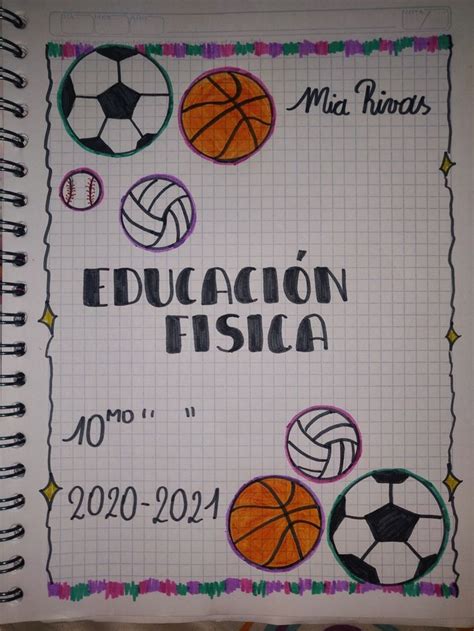 Mia Rivas
EDUCACIÓN
FISICA
10 MO " "
2020-2021